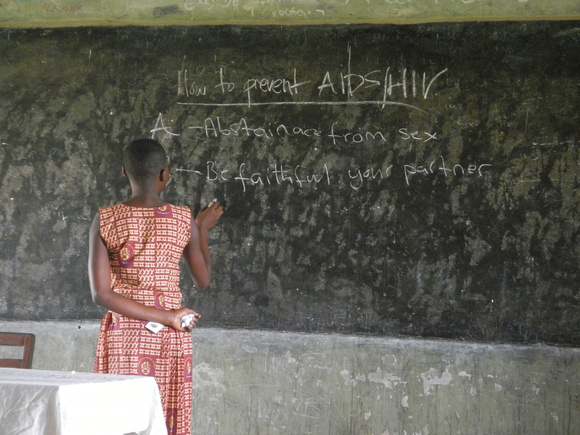 How to prevent AIDS/HIV
A: - Abstainace from sex
- Be faithful your partner